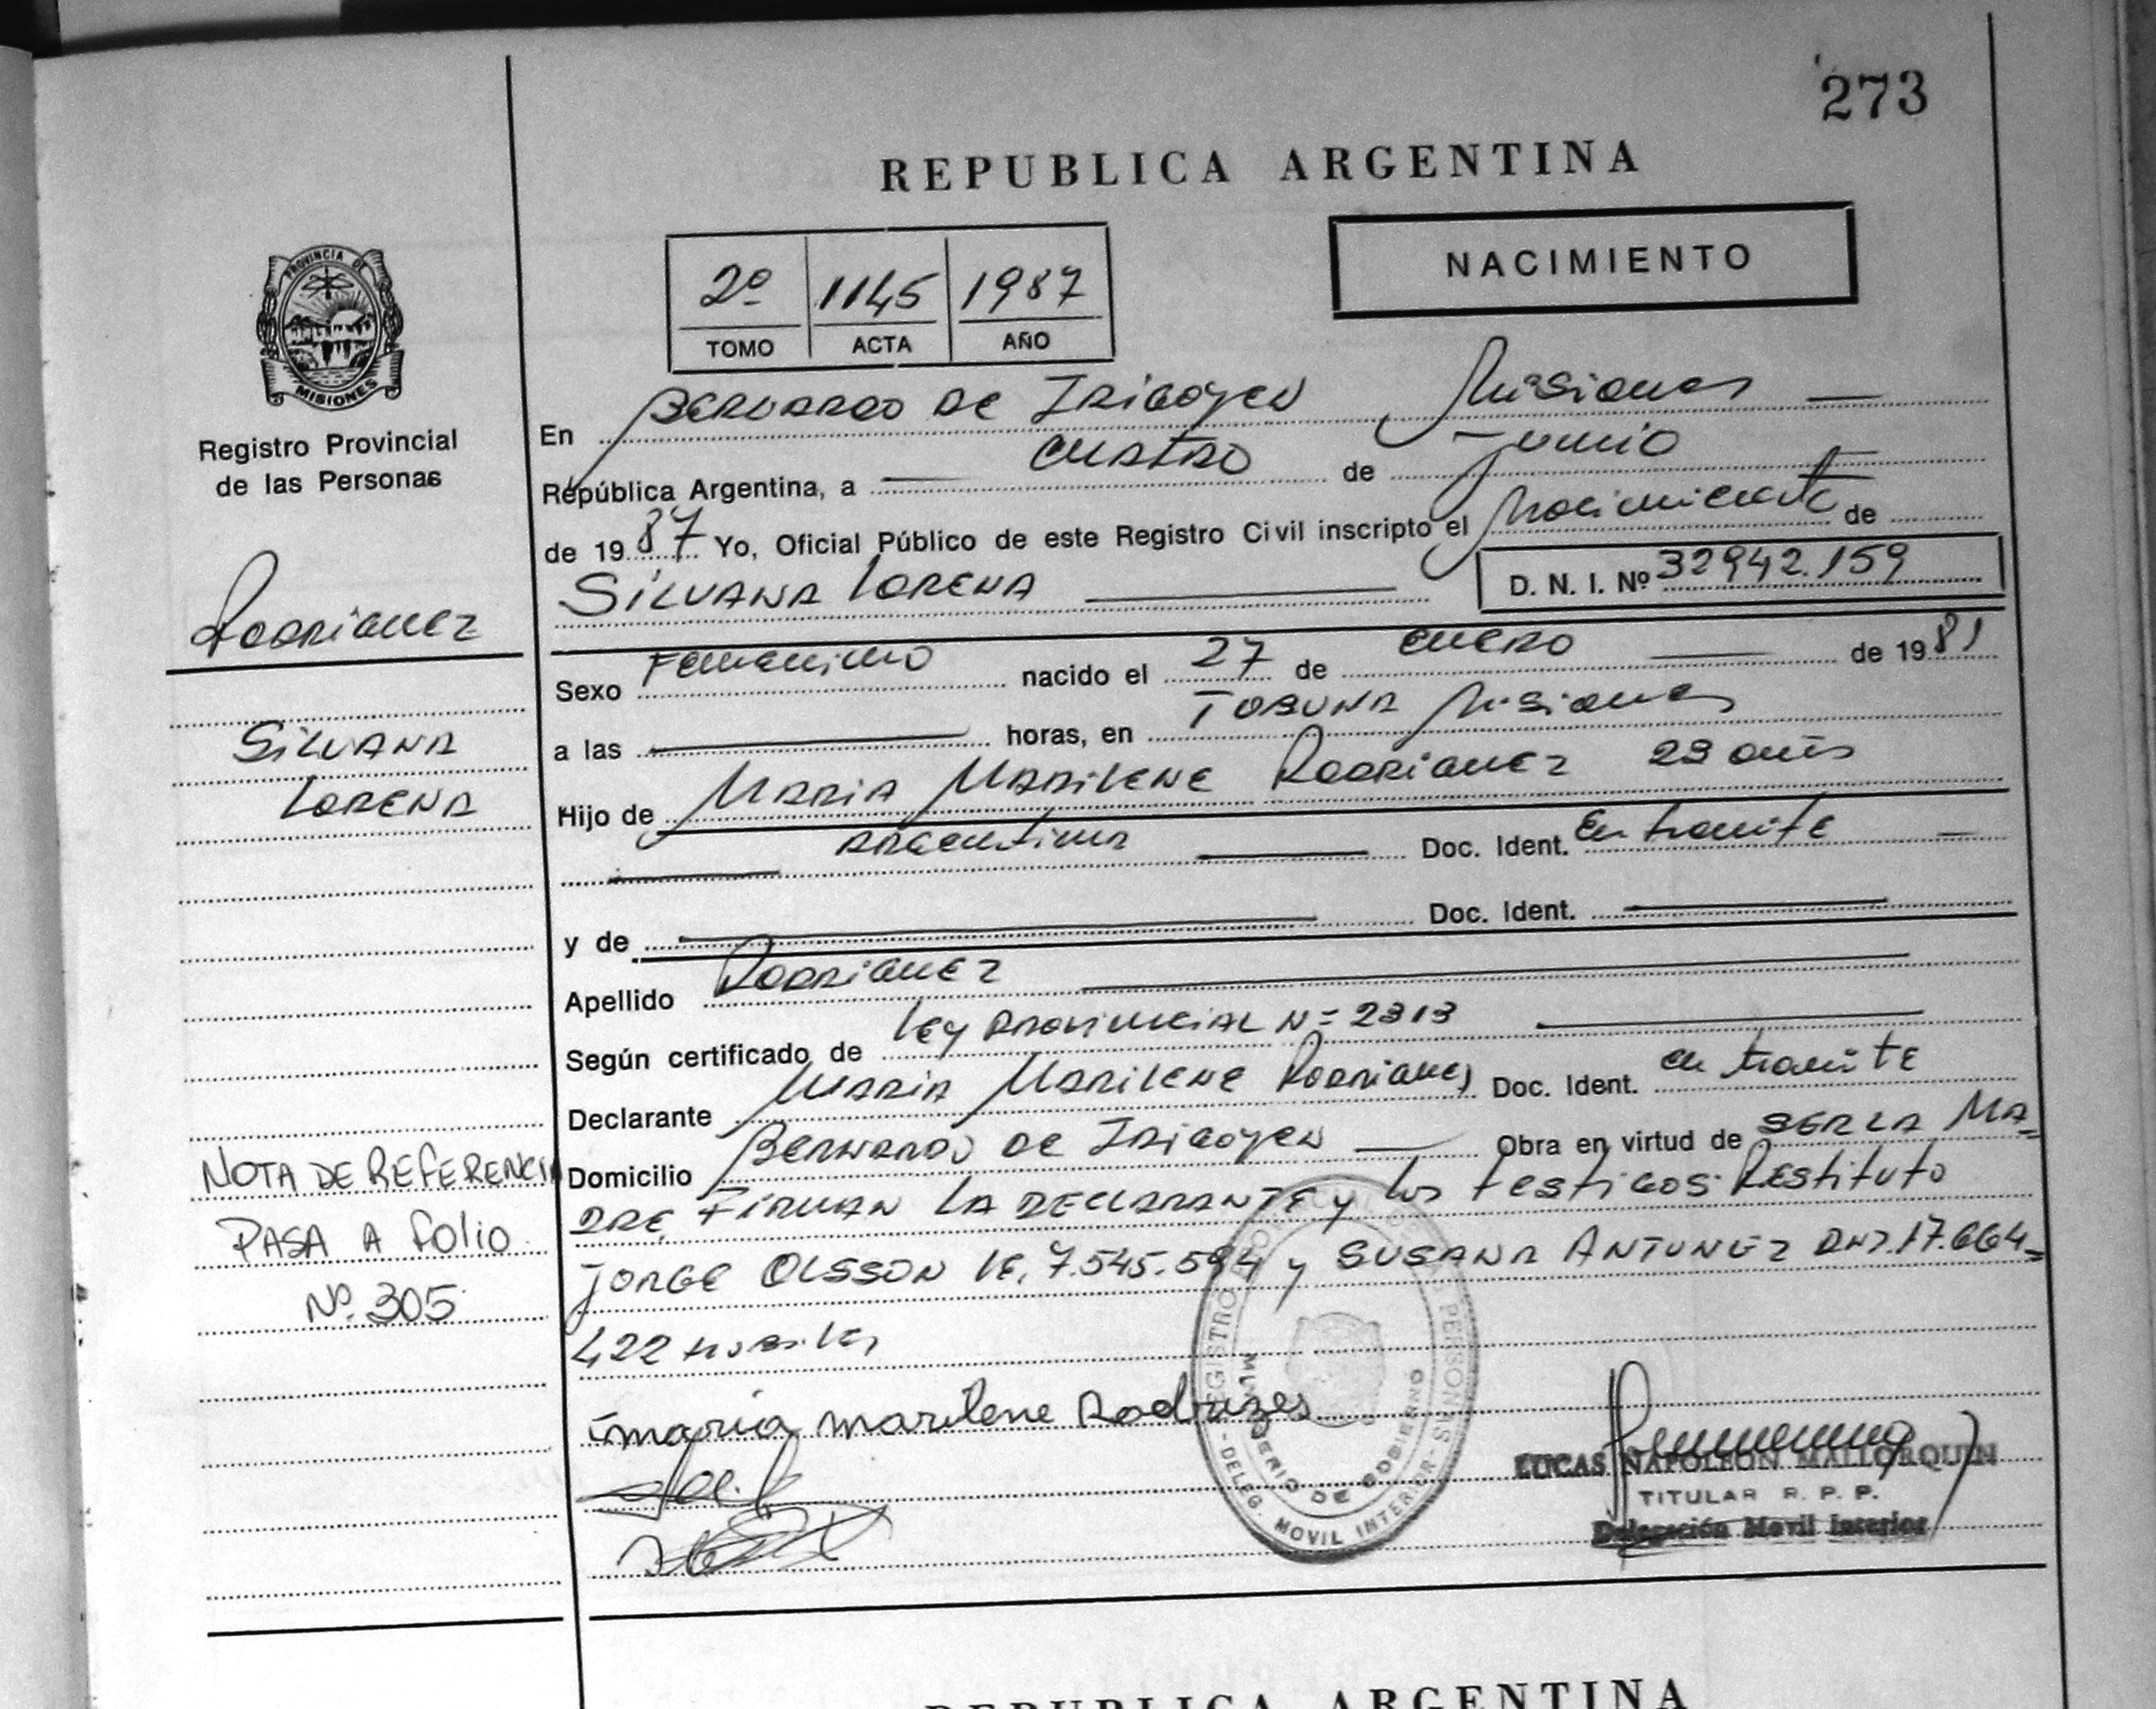 273
REPUBLICA ARGENTINA
NACIMIENTO
2º 1145 1987
TOMO ACTA AÑO
PROVINCIA DE
MISIONES
Registro Provincial
de las Personas
Rodriguez
Silvana
Lorena
NOTA DE REFERENCIA
PASA A folio
Nº 305
En Bernardo de Irigoyen Misiones
República Argentina, a cuatro de Junio
de 1987 Yo, Oficial Público de este Registro Civil inscripto el Nacimiento de
Silvana Lorena D. N. I. Nº 32942.159
Sexo Femenino nacido el 27 de enero de 1981
a las horas, en Tobuna Misiones
Hijo de Maria Marilene Rodriguez 23 años
argentina Doc. Ident. En tramite
y de Doc. Ident.
Apellido Rodriguez
Según certificado de Ley Provincial Nº 2313
Declarante Maria Marilene Rodriguez Doc. Ident. en tramite
Domicilio Bernardo de Irigoyen Obra en virtud de ser la ma=
dre, Firman la declarante y los testigos: Restituto
Jorge Olsson LE. 7.545.594 y Susana Antunez DNI. 17.664=
422
maria marilene Rodrizes
REGISTRO PERSONAS - DELEG. MOVIL INTERIOR -
MINISTERIO DE GOBIERNO
LUCAS NAPOLEON MALLORQUIN
TITULAR R. P. P.
Delegación Movil Interior
REPUBLICA ARGENTINA